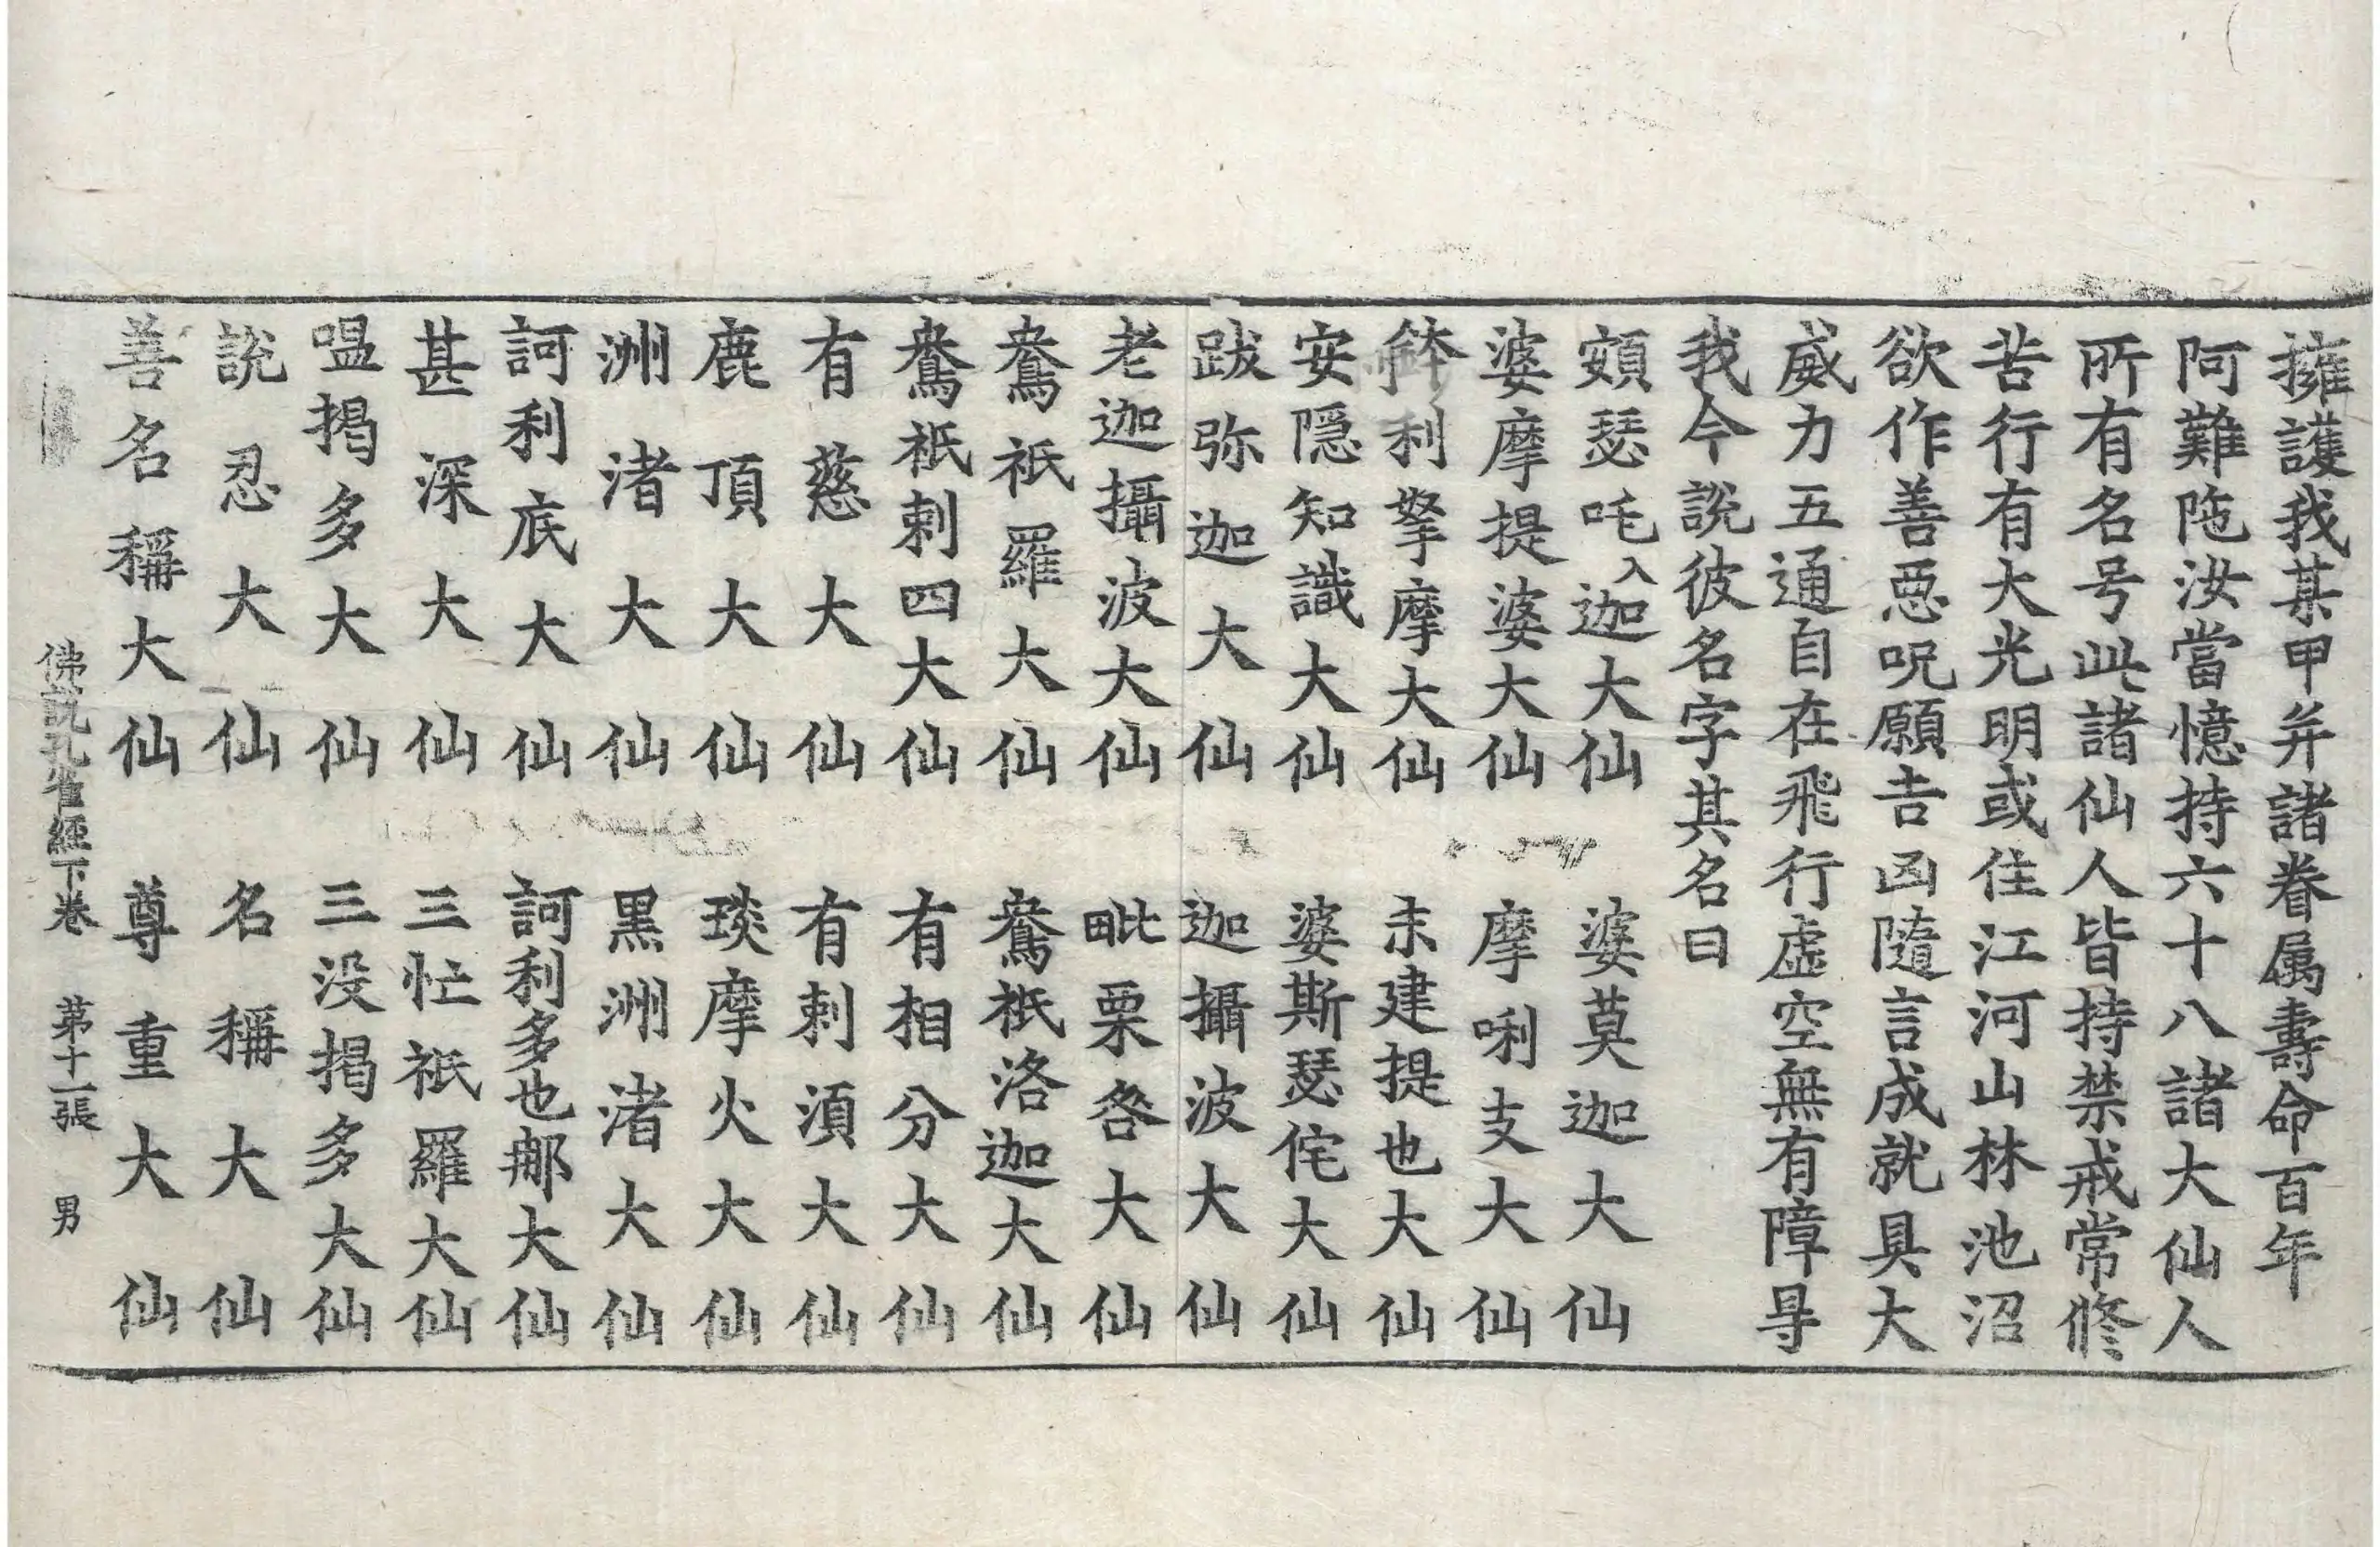 擁護我某甲并諸眷属壽命百年
阿難陁汝當憶持六十八諸大仙人
所有名号此諸仙人皆持禁戒常修
苦行有大光明或住江河山林池沼
欲作善惡呪願吉凶隨言成就具大
威力五通自在飛行虛空無有障㝵
我今說彼名字其名曰
頞瑟吒入迦大仙　婆莫迦大仙
婆摩提婆大仙　摩唎支大仙
鉢利拏摩大仙　末建提也大仙
安隱知識大仙　婆斯瑟侘大仙
跋弥迦大仙　迦攝波大仙
老迦攝波大仙　毗栗咎大仙
鴦祇羅大仙　鴦祇洛迦大仙
鴦祇剌四大仙　有相分大仙
有慈大仙　有剌湏大仙
鹿頂大仙　琰摩火大仙
洲渚大仙　黑洲渚大仙
訶利底大仙　訶利多也郍大仙
甚深大仙　三忙祇羅大仙
嗢揭多大仙　三没揭多大仙
說忍大仙　名稱大仙
善名稱大仙　尊重大仙
佛說孔雀經下卷　第十一張　男